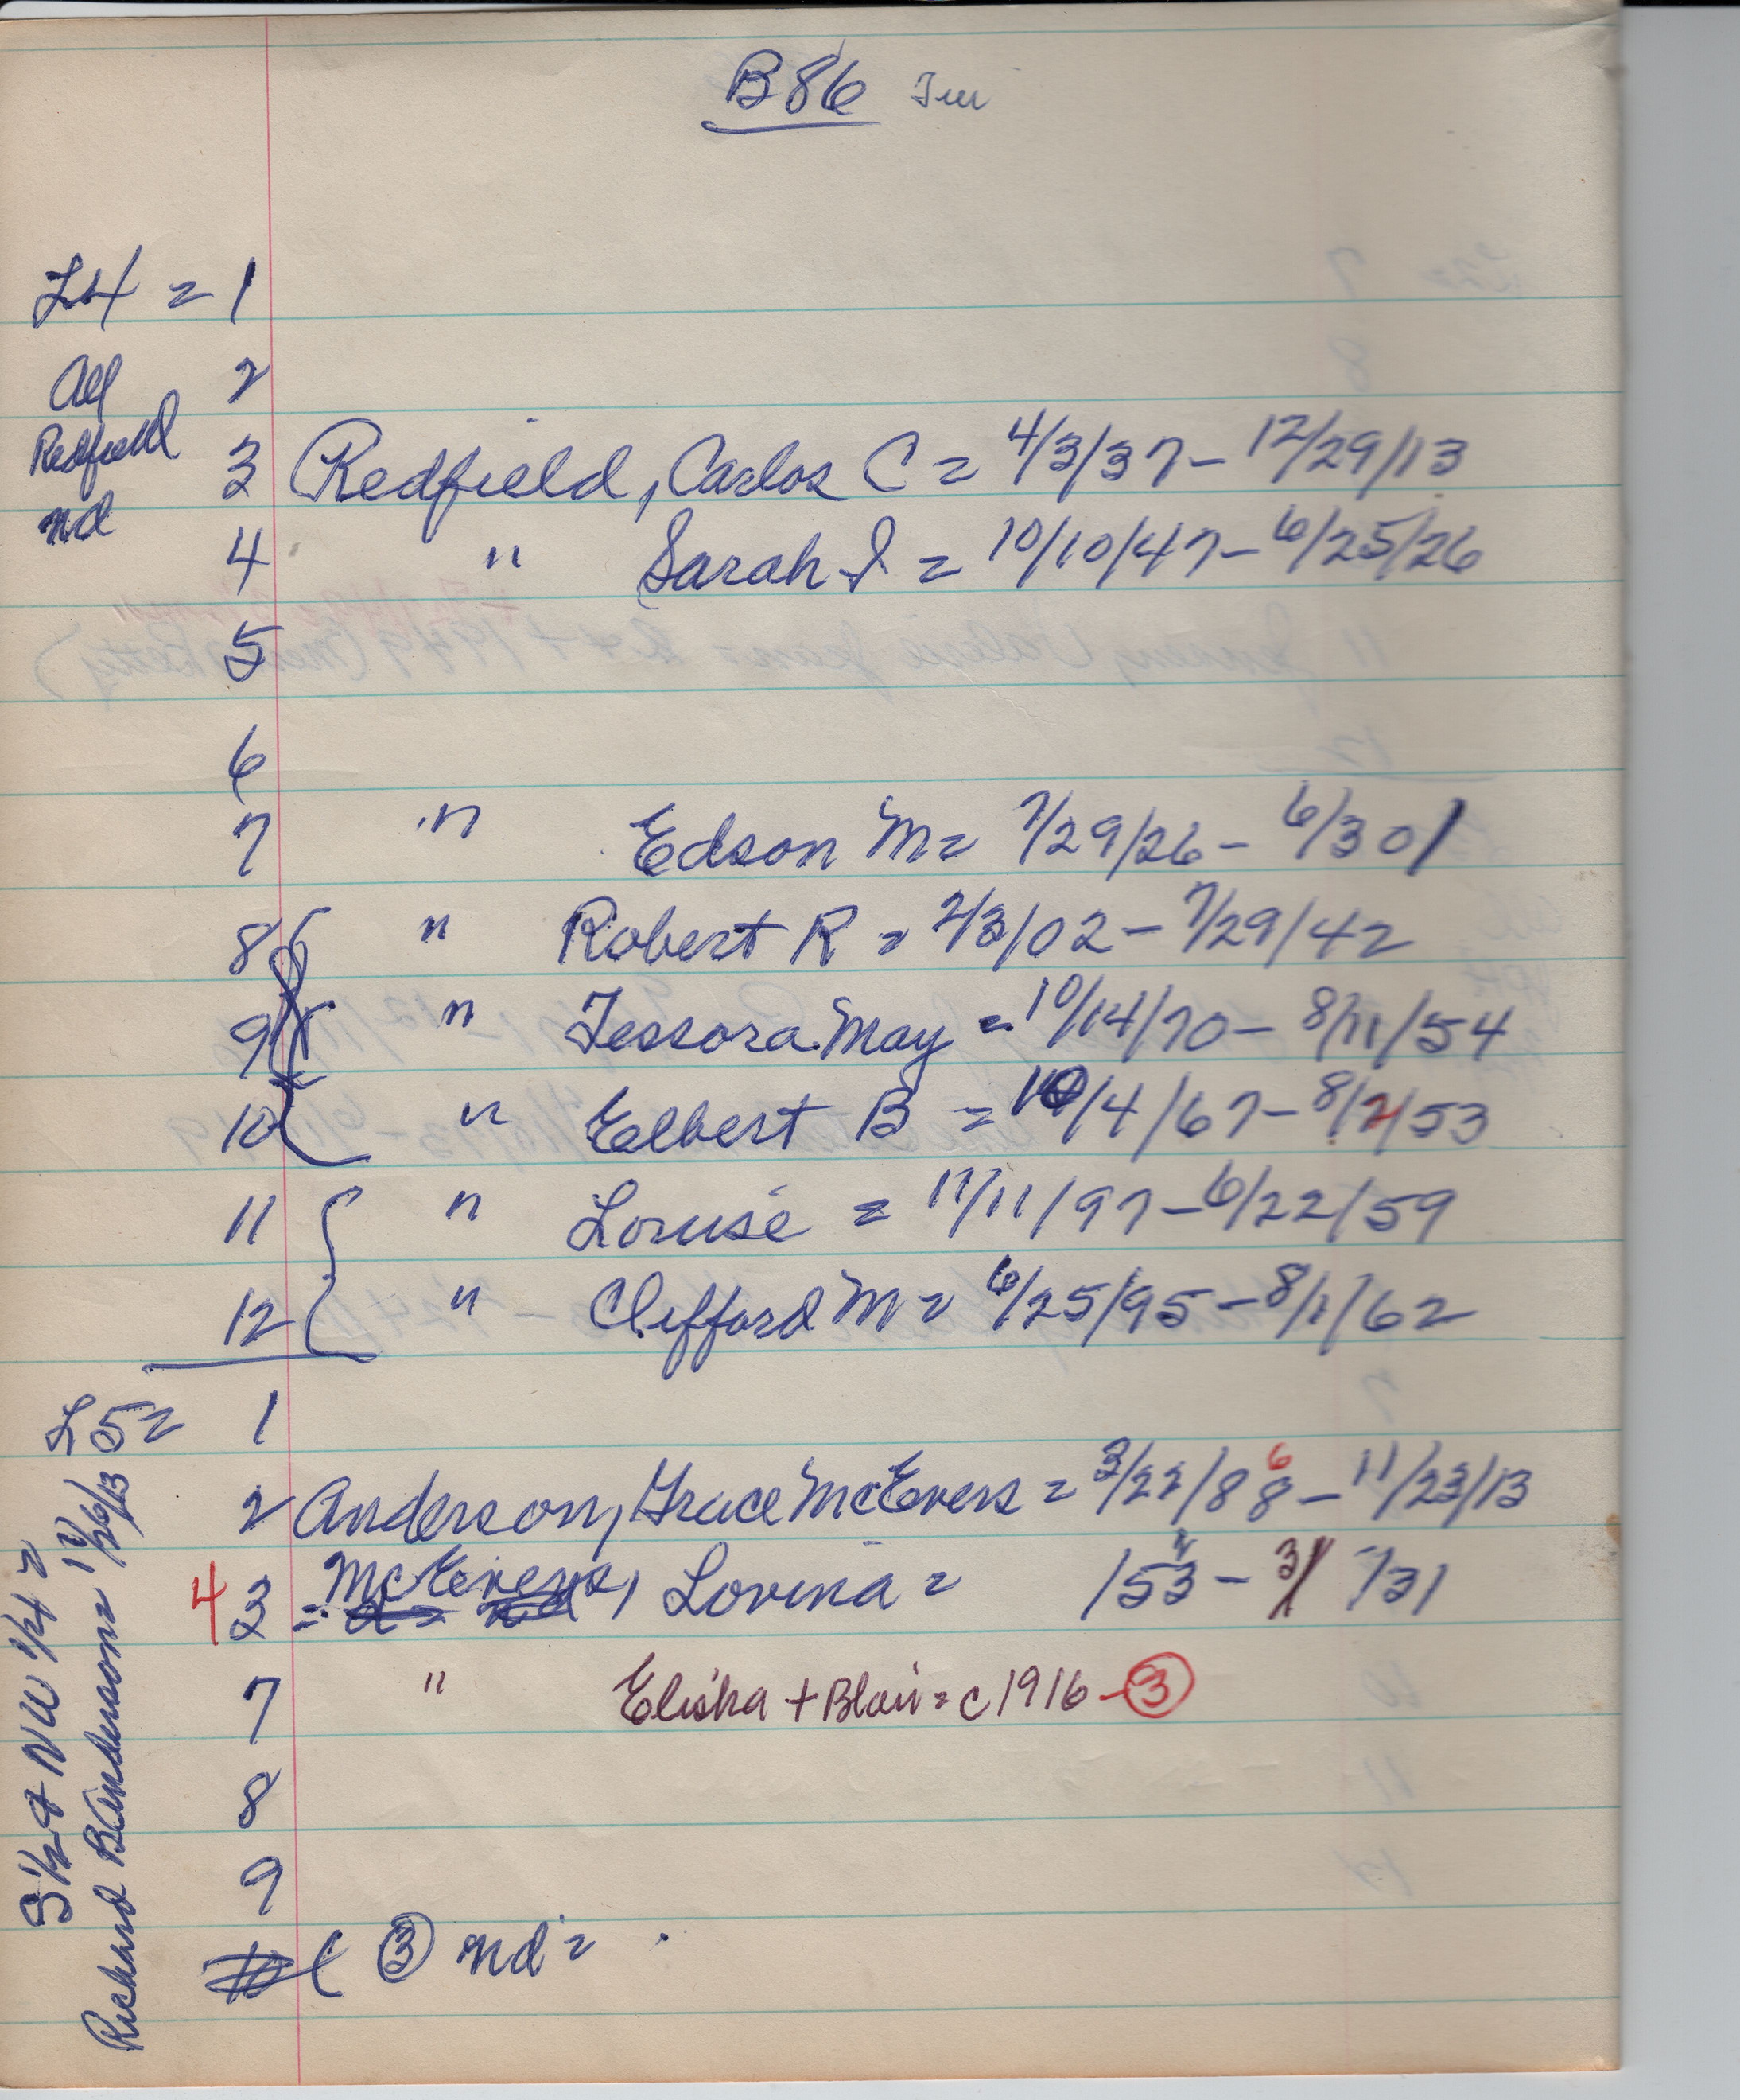 B86
L4 = 1
All 2
Redfield
nd
3 Redfield, Carlos C = 4/3/37 - 12/29/13
4 " Sarah I = 10/10/47 - 6/25/26
5
6
7 " Edson M = 7/29/26 - 6/30/
8 " Robert R = 2/3/02 - 7/29/42
9 " Tessora May = 10/14/70 - 8/11/54
10 " Elbert B = 10/4/67 - 8/2/53
11 " Louise = 11/11/97 - 6/22/59
12 " Clifford M = 6/25/95 - 8/1/62
L5 = 1
2 Anderson, Grace McEvers = 3/22/88 6 - 11/23/13
4 3 = McEvers, Lovina = /53 - 3/ /31
7 " Elisha + Blair = c 1916 - 3
8
9
( 3 nd =
S 1/2 & NW 1/4 =
Richard B Anderson = 12/26/13